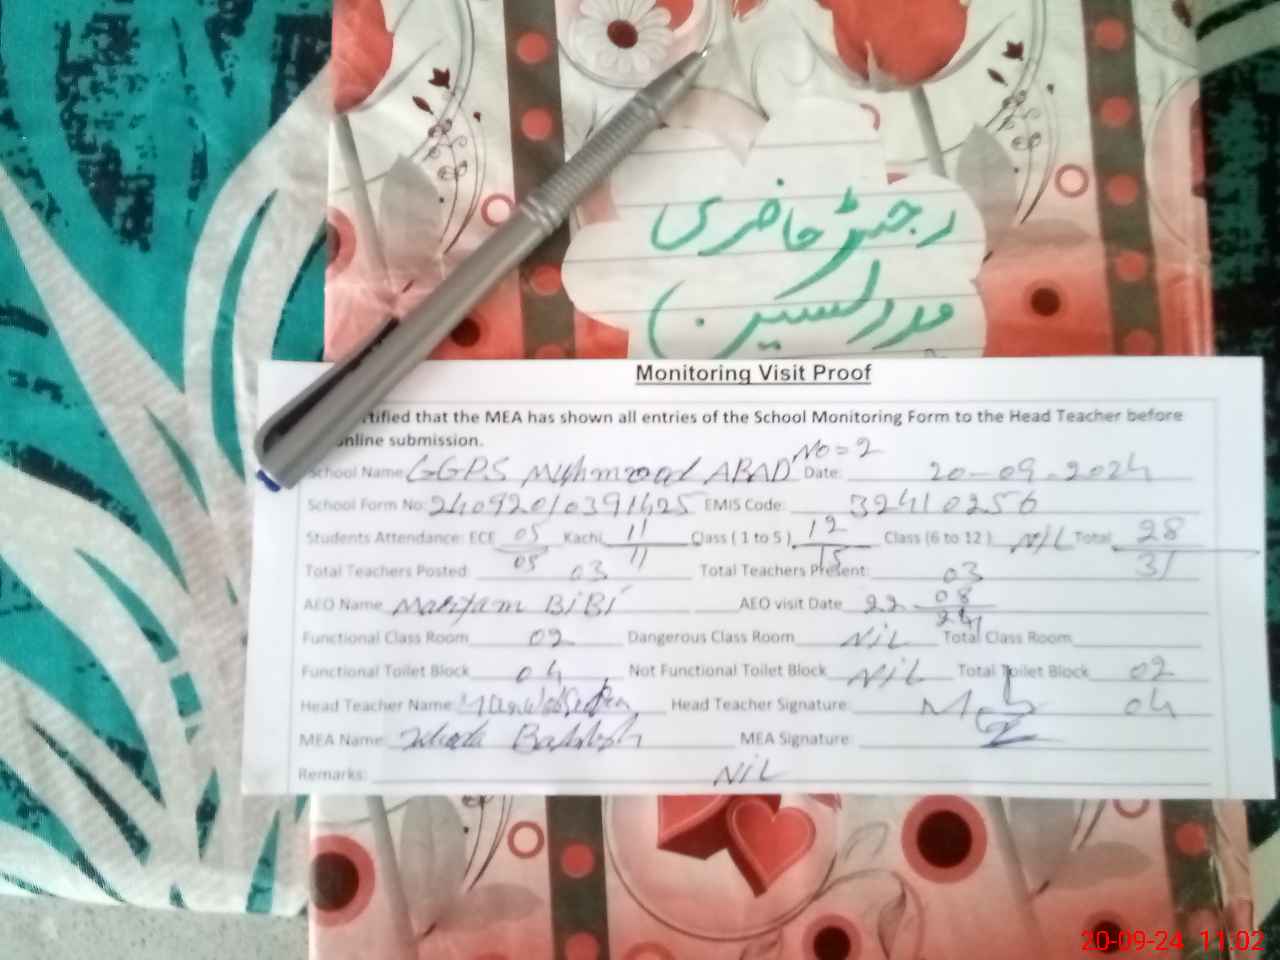 رجسٹر حاضری
مدرلسین
Monitoring Visit Proof
rtified that the MEA has shown all entries of the School Monitoring Form to the Head Teacher before
online submission.
School Name: GGPS Mehmood ABAD No=2 Date: 20-09-2024
School Form No: 24092010391425 EMIS Code: 32410256
Students Attendance: ECE 05/05 Kachi 11/11 Class (1 to 5) 12/15 Class (6 to 12) NIL Total 28/31
Total Teachers Posted: 03 Total Teachers Present: 03
AEO Name Mariyam BiBi AEO visit Date 22 08/24
Functional Class Room 02 Dangerous Class Room NIL Total Class Room
Functional Toilet Block 04 Not Functional Toilet Block NIL Total Toilet Block 02
Head Teacher Name: Head Teacher Signature: 04
MEA Name: Bakhsh MEA Signature:
Remarks: NIL
20-09-24 11:02